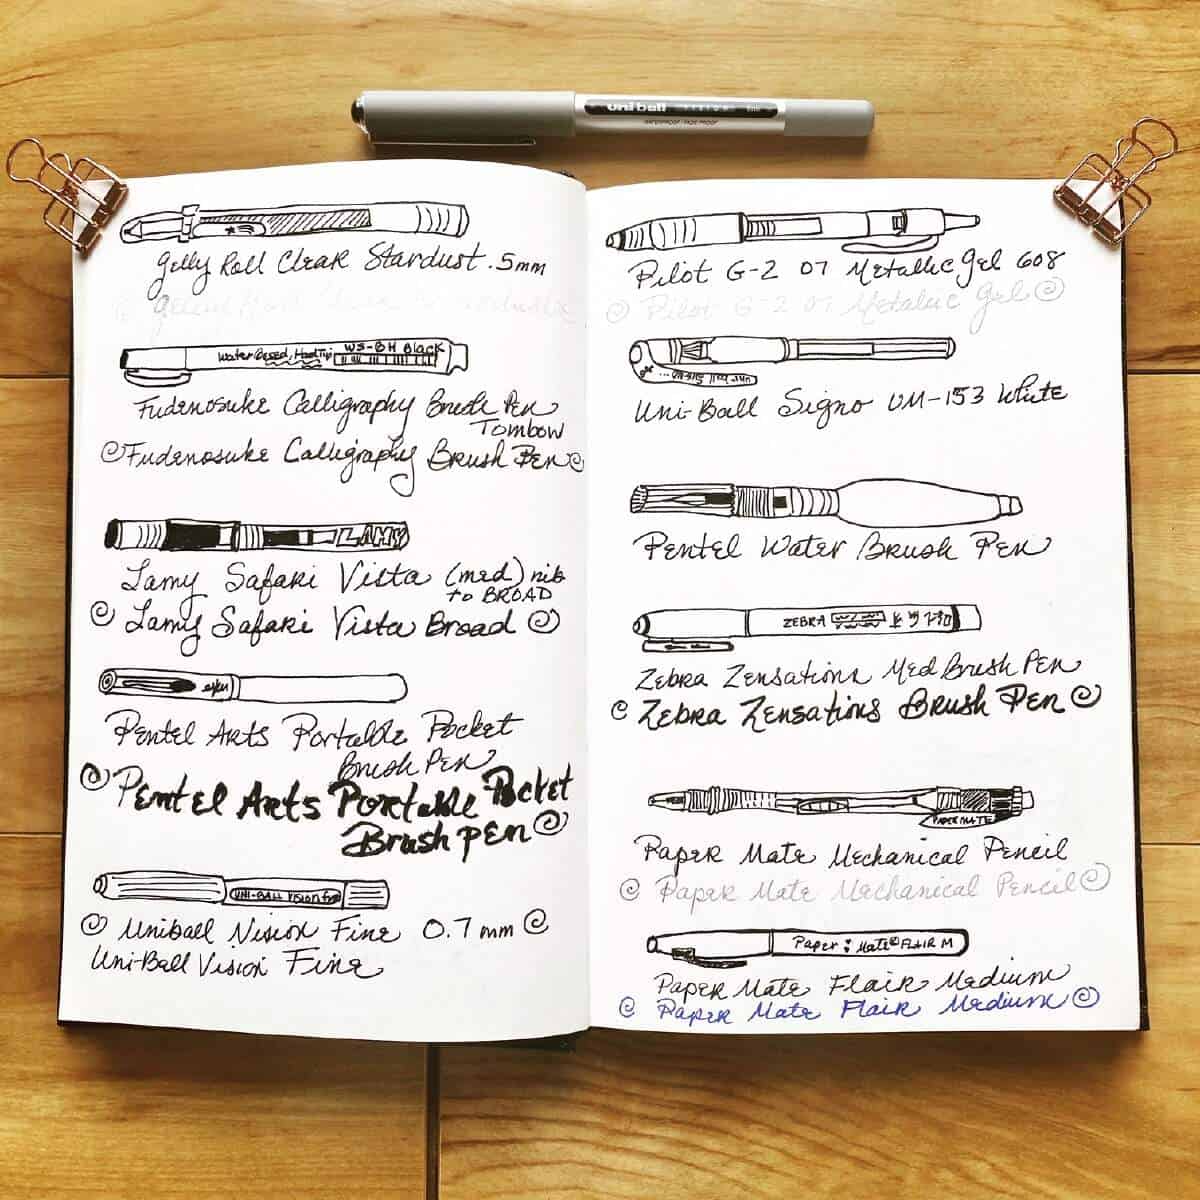 uni-ball VISION fine
WATERPROOF / FADE PROOF
Gelly Roll Clear Stardust .5mm
Water Based, Hard Tip WS-BH Black
Fudenosuke Calligraphy Brush Pen
Tombow
Fudenosuke Calligraphy Brush Pen
LAMY
Lamy Safari Vista (med) nib
to BROAD
Lamy Safari Vista Broad
Pentel Arts Portable Pocket
Brush Pen
Pentel Arts Portable Pocket
Brush Pen
UNI-BALL VISION fine
Uniball Vision Fine 0.7mm
Uni-Ball Vision Fine
Pilot G-2 07 Metallic Gel 608
Pilot G-2 07 Metallic Gel
Uni-Ball Signo UM-153 White
Pentel Water Brush Pen
ZEBRA
Zebra Zensations Med Brush Pen
Zebra Zensations Brush Pen
PAPERMATE
Paper Mate Mechanical Pencil
Paper Mate Mechanical Pencil
Paper: Mate® FLAIR M
Paper Mate Flair Medium
Paper Mate Flair Medium